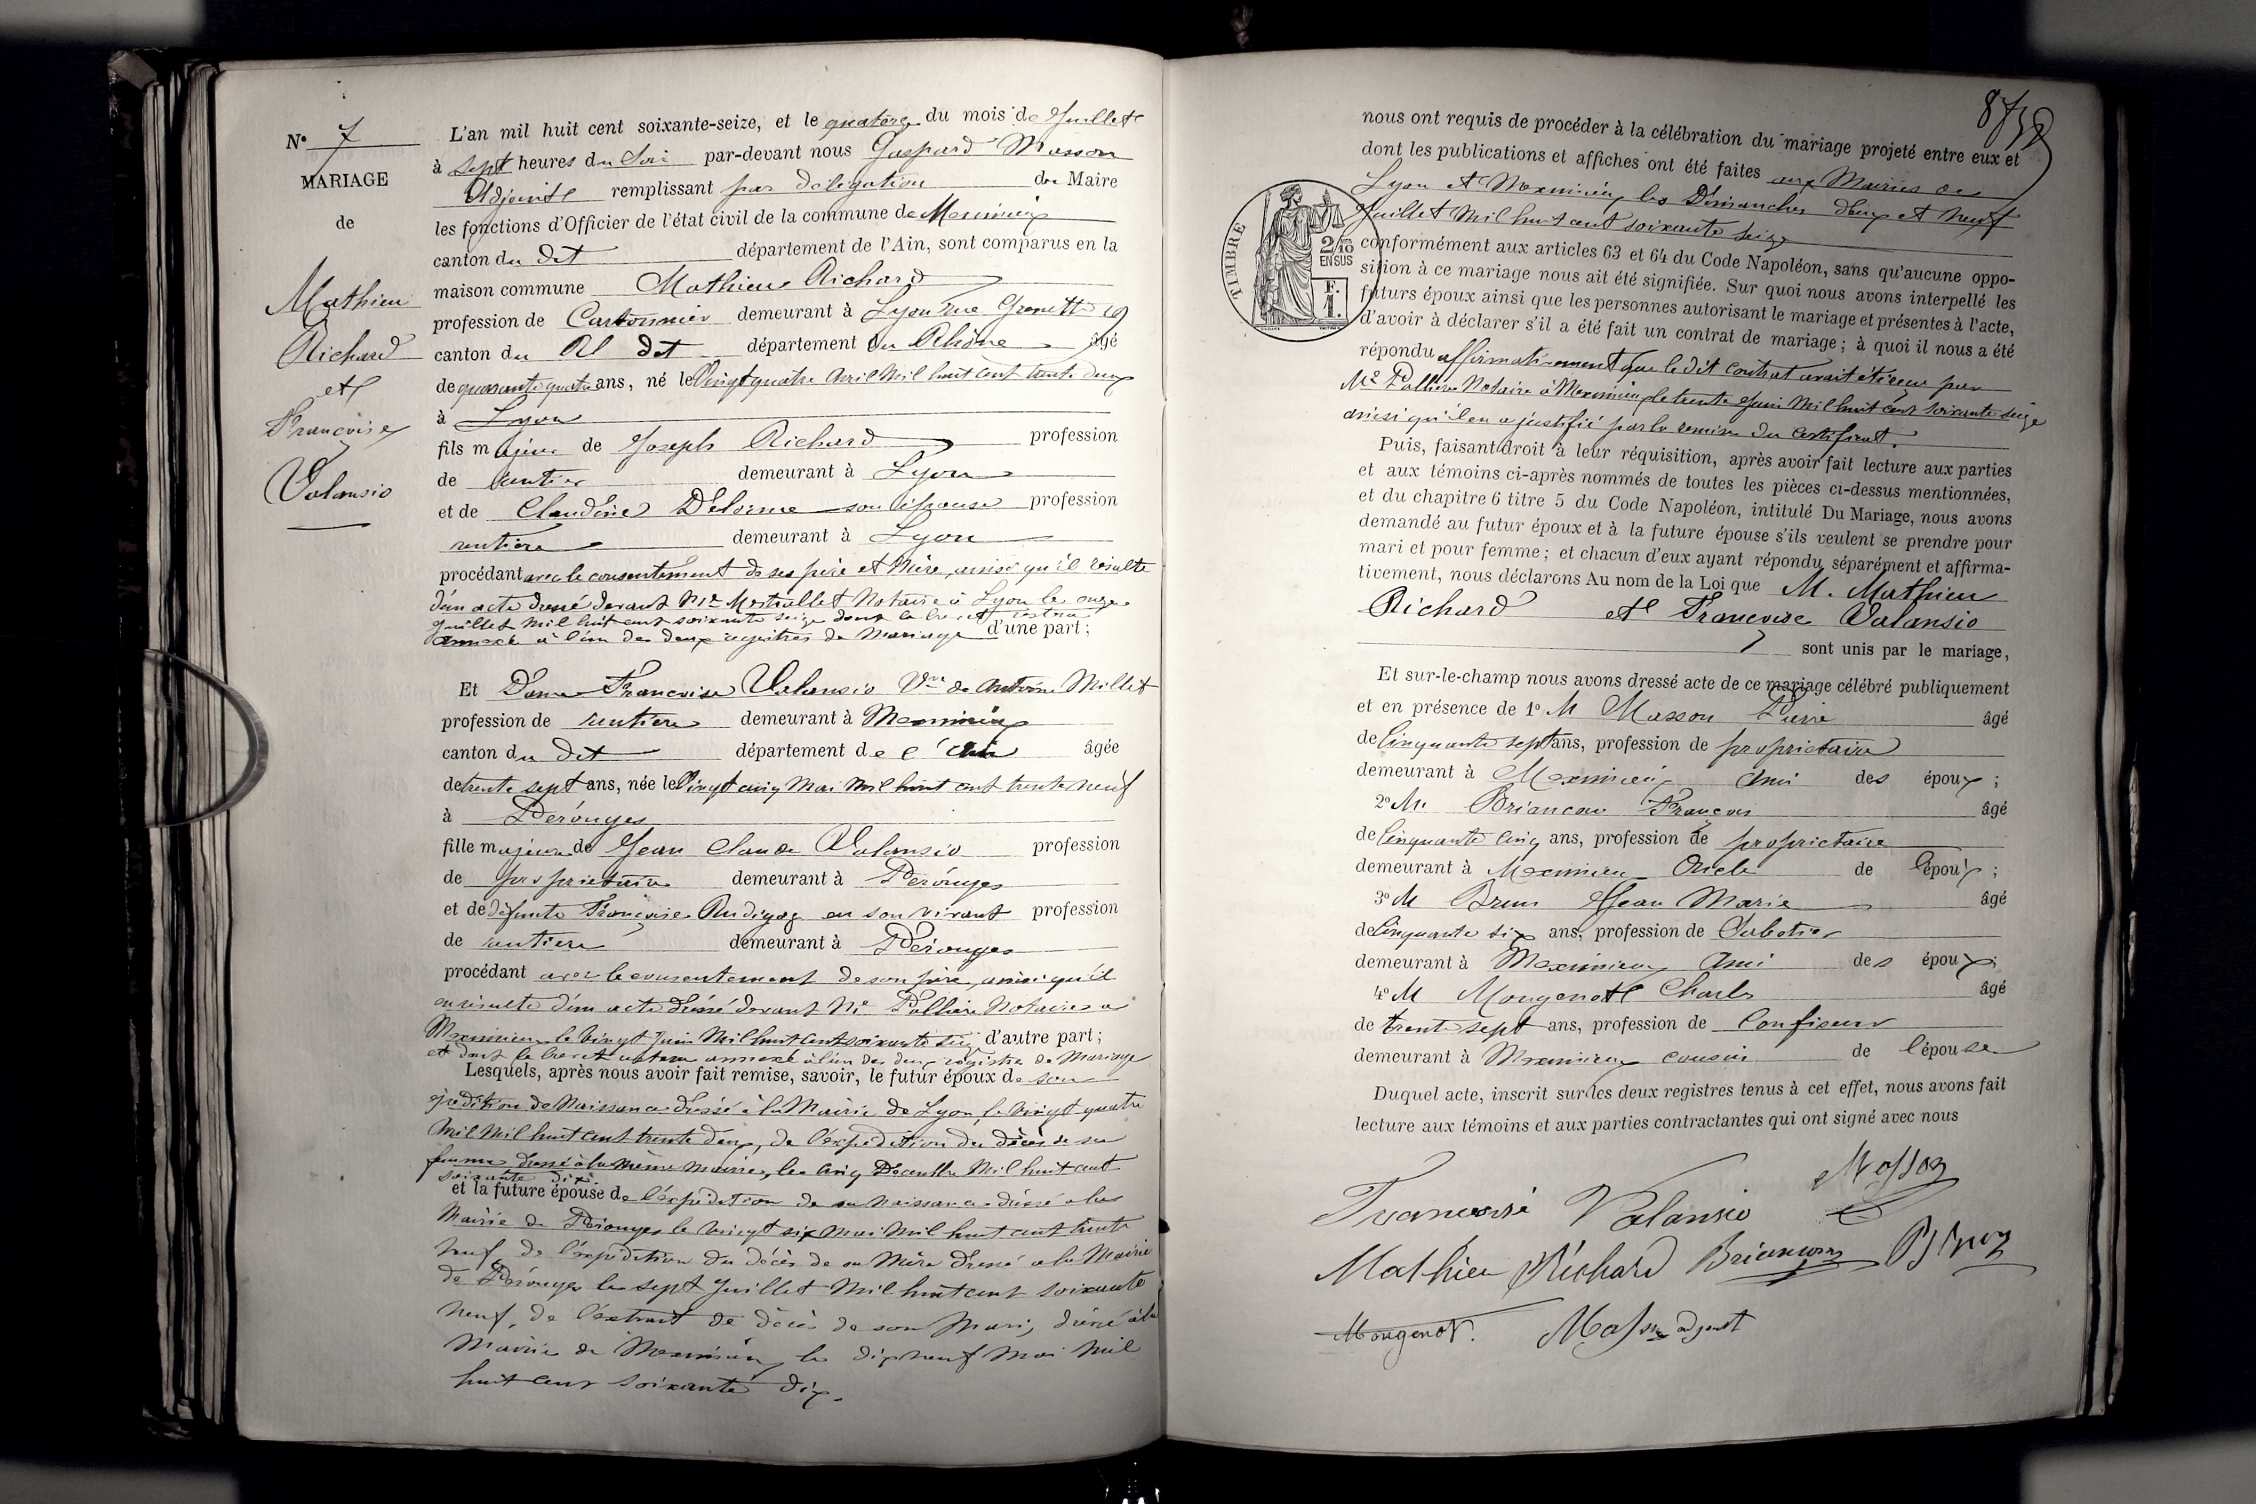 N° 7
MARIAGE
de
Mathieu
Richard
et
Françoise
Valansio
L'an mil huit cent soixante-seize, et le quatorze du mois de Juillet
à sept heures du Soir par-devant nous Gaspard Masson
Adjoint remplissant par délégation du Maire
les fonctions d'Officier de l'état civil de la commune de Meximieux
canton du dit département de l'Ain, sont comparus en la
maison commune Mathieu Richard
profession de Cartonnier demeurant à Lyon rue Grenette 19
canton du dit département du Rhône âgé
de quarante quatre ans, né le Vingt quatre Avril Mil huit cent trente deux
à Lyon
fils majeur de Joseph Richard profession
de rentier demeurant à Lyon
et de Claudine Delorme son épouse profession
rentière demeurant à Lyon
procédant avec le consentement de ses père et Mère, ainsi qu'il résulte
d'un acte dressé devant Me Mestrallet Notaire à Lyon le onze
Juillet Mil huit cent soixante seize dont le brevet restera
annexé à l'un des deux registres de Mariage d'une part ;
Et Dame Françoise Valansio Vve de Antoine Millet
profession de rentière demeurant à Meximieux
canton du dit département de l'Ain âgée
de trente sept ans, née le Vingt cinq Mai Mil huit cent trente neuf
à Pérouges
fille majeure de Jean Claude Valansio profession
de propriétaire demeurant à Pérouges
et de défunte Françoise Rudigoz en son vivant profession
de rentière demeurant à Pérouges
procédant avec le consentement de son père, ainsi qu'il
en résulte d'un acte dressé devant Me Pallière Notaire à
Meximieux le Vingt Juin Mil huit cent soixante seize d'autre part ;
et dont le brevet restera annexé à l'un des deux registre de Mariage
Lesquels, après nous avoir fait remise, savoir, le futur époux de son
expédition de Naissance dressé à la Mairie de Lyon, le Vingt quatre
Avril Mil huit cent trente deux, de l'expédition du décès de sa
femme dressé à la même mairie, le cinq Décembre Mil huit cent
soixante dix.
et la future épouse de l'expédition de sa Naissance dressé à la
Mairie de Pérouges le vingt six Mai Mil huit cent trente
neuf, de l'expédition du décès de sa Mère dressé à la Mairie
de Pérouges le sept Juillet Mil huit cent soixante
neuf, de l'extrait de décès de son Mari, dressé à la
Mairie de Meximieux le dix neuf Mai Mil
huit cent soixante dix.
nous ont requis de procéder à la célébration du mariage projeté entre eux et
dont les publications et affiches ont été faites aux Mairies de
Lyon et Meximieux les Dimanches deux et neuf
Juillet Mil huit cent soixante seize
TIMBRE
2/10
EN SUS
F.
1.
conformément aux articles 63 et 64 du Code Napoléon, sans qu'aucune oppo-
sition à ce mariage nous ait été signifiée. Sur quoi nous avons interpellé les
futurs époux ainsi que les personnes autorisant le mariage et présentes à l'acte,
d'avoir à déclarer s'il a été fait un contrat de mariage ; à quoi il nous a été
répondu affirmativement que le dit contrat avait été reçu par
Me Pallière Notaire à Meximieux le trente Juin Mil huit cent soixante seize
ainsi qu'il en a justifié par la remise du certificat.
Puis, faisant droit à leur réquisition, après avoir fait lecture aux parties
et aux témoins ci-après nommés de toutes les pièces ci-dessus mentionnées,
et du chapitre 6 titre 5 du Code Napoléon, intitulé Du Mariage, nous avons
demandé au futur époux et à la future épouse s'ils veulent se prendre pour
mari et pour femme ; et chacun d'eux ayant répondu séparément et affirma-
tivement, nous déclarons Au nom de la Loi que M. Mathieu
Richard et Françoise Valansio
sont unis par le mariage,
Et sur-le-champ nous avons dressé acte de ce mariage célébré publiquement
et en présence de 1° M Masson Pierre âgé
de Cinquante sept ans, profession de propriétaire
demeurant à Meximieux Ami des époux ;
2° M. Briancon François âgé
de Cinquante cinq ans, profession de propriétaire
demeurant à Meximieux Oncle de l'époux ;
3° M Brun Jean Marie âgé
de Cinquante six ans, profession de Sabotier
demeurant à Meximieux Ami des époux ;
4° M Mougenott Charles âgé
de trente sept ans, profession de Confiseur
demeurant à Meximieux cousin de l'épouse
Duquel acte, inscrit sur les deux registres tenus à cet effet, nous avons fait
lecture aux témoins et aux parties contractantes qui ont signé avec nous
Masson
Francoise Valansio
Mathieu Richard Briancon Brun
Mougenot. Masson adjoint